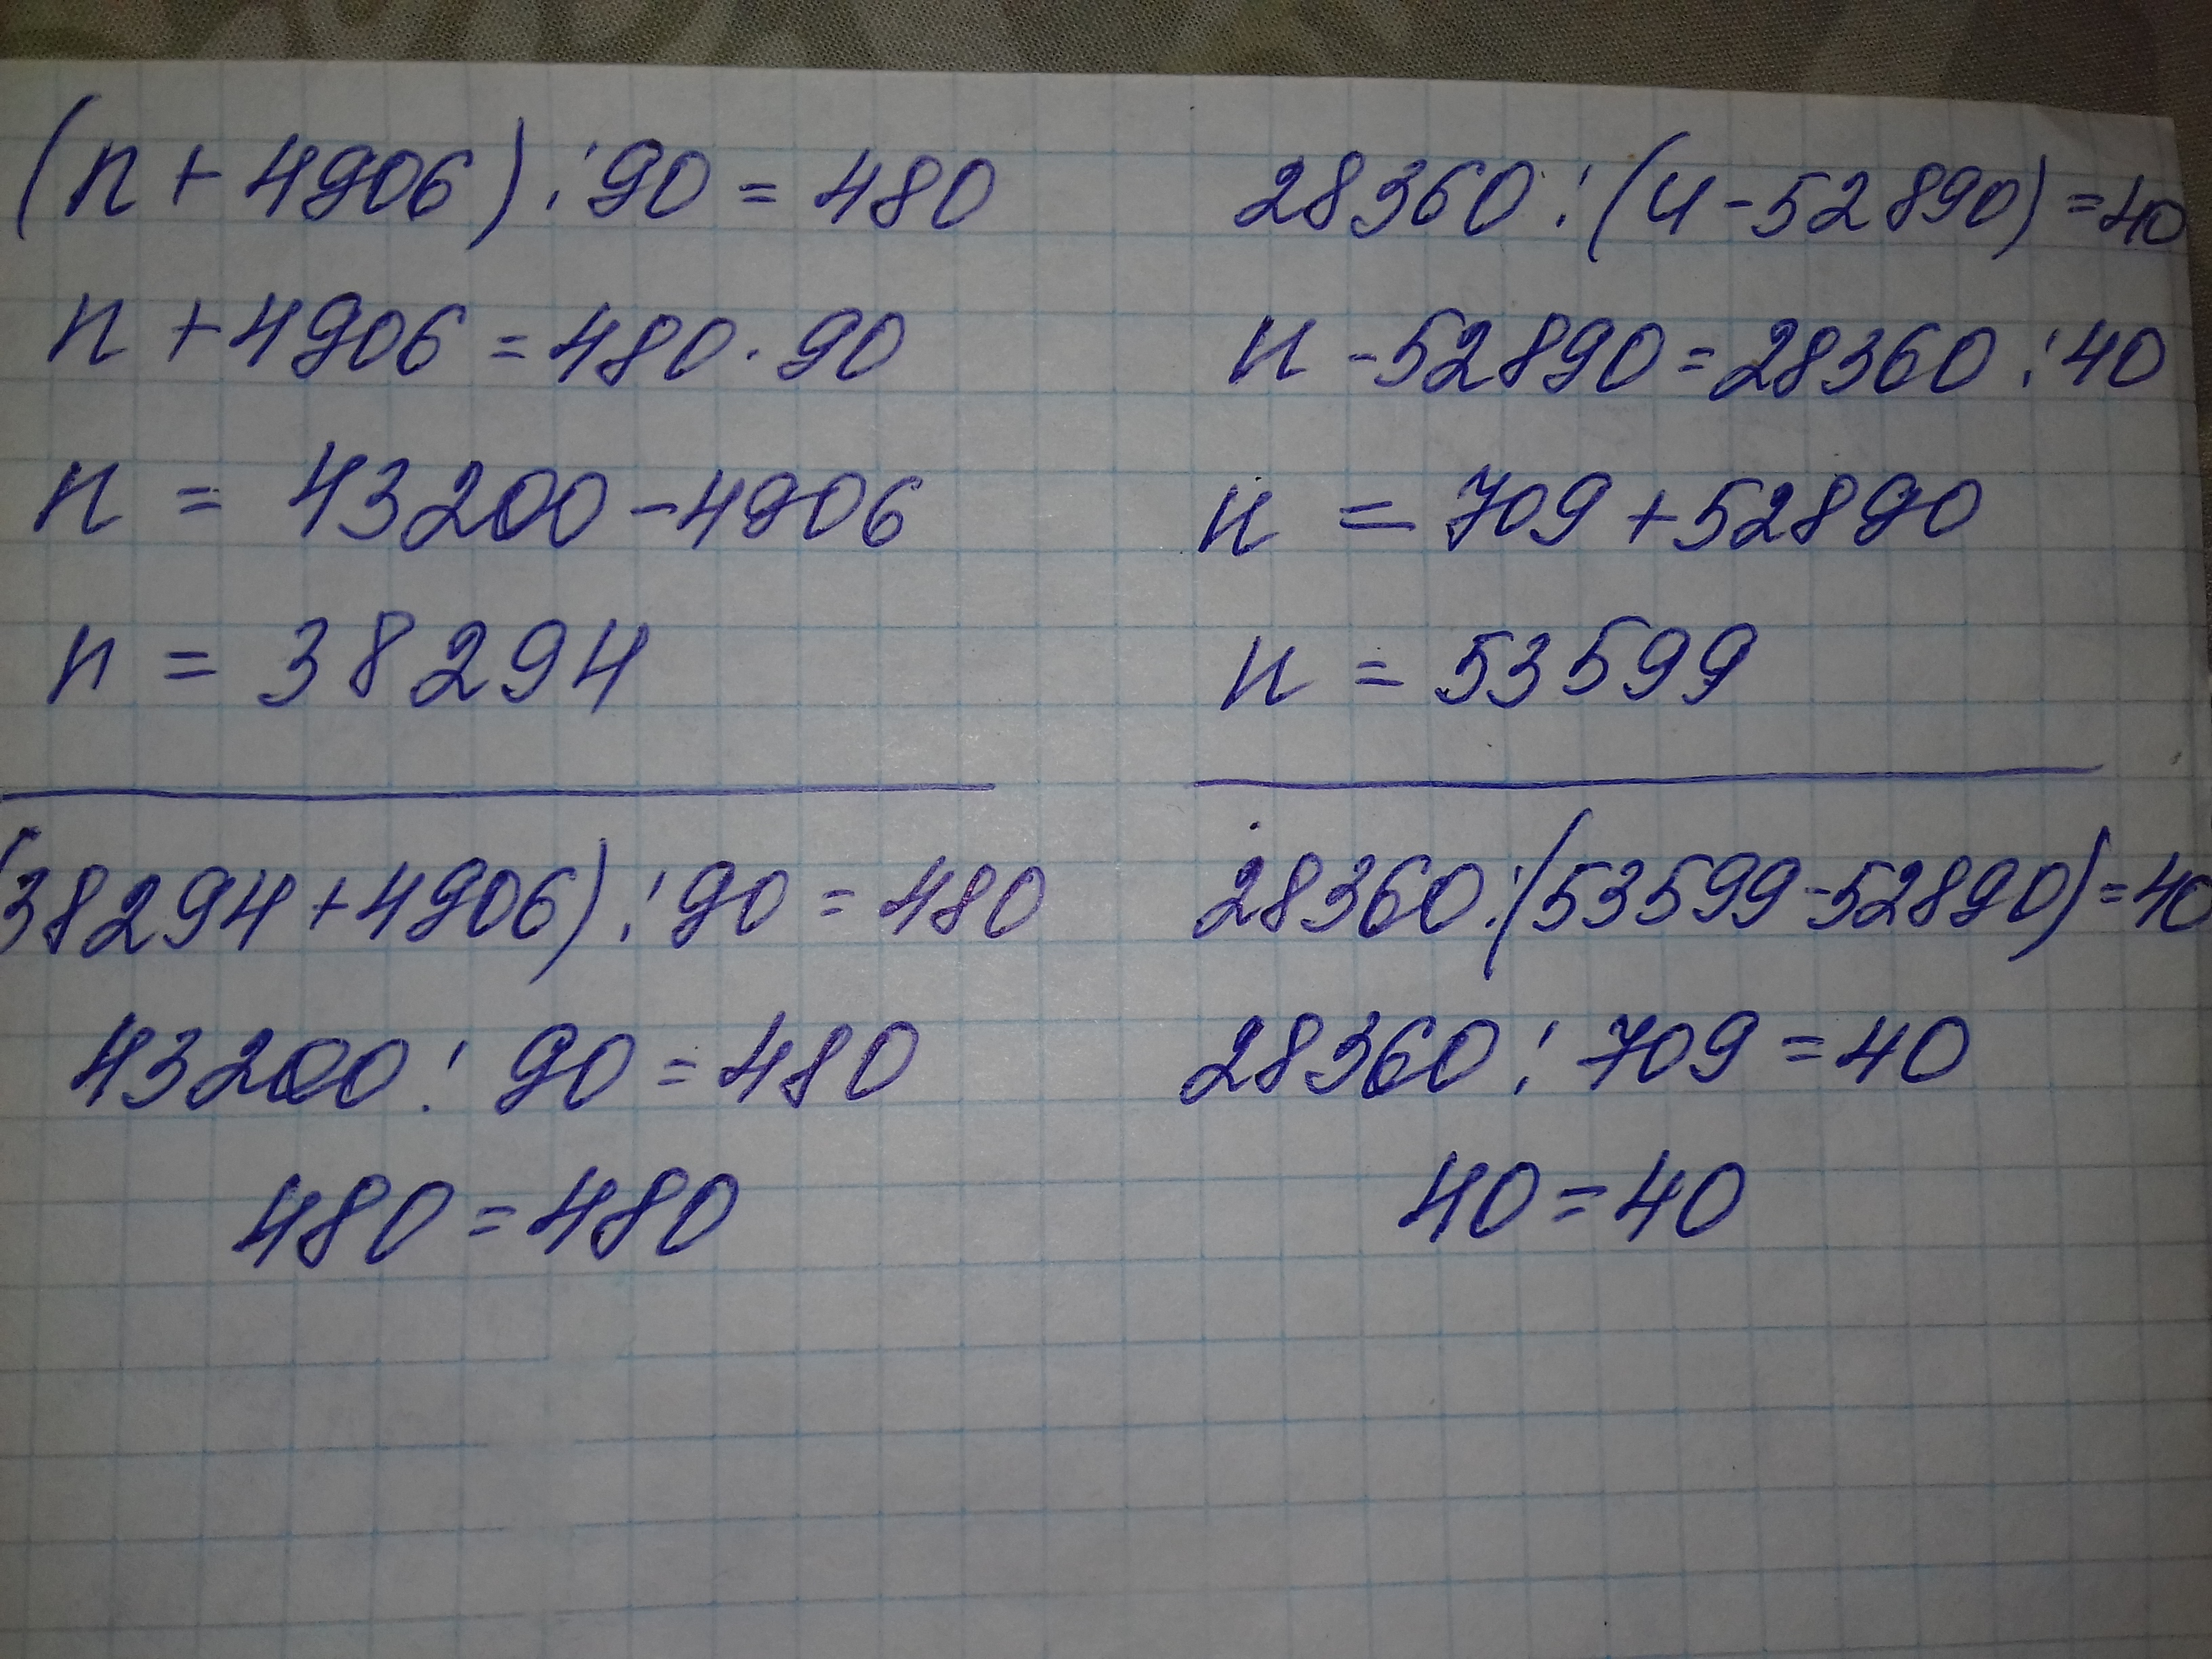 (n + 4906) : 90 = 480
n + 4906 = 480 · 90
n = 43200 - 4906
n = 38294
(38294 + 4906) : 90 = 480
43200 : 90 = 480
480 = 480
28360 : (и - 52890) = 40
и - 52890 = 28360 : 40
и = 709 + 52890
и = 53599
28360 : (53599 - 52890) = 40
28360 : 709 = 40
40 = 40